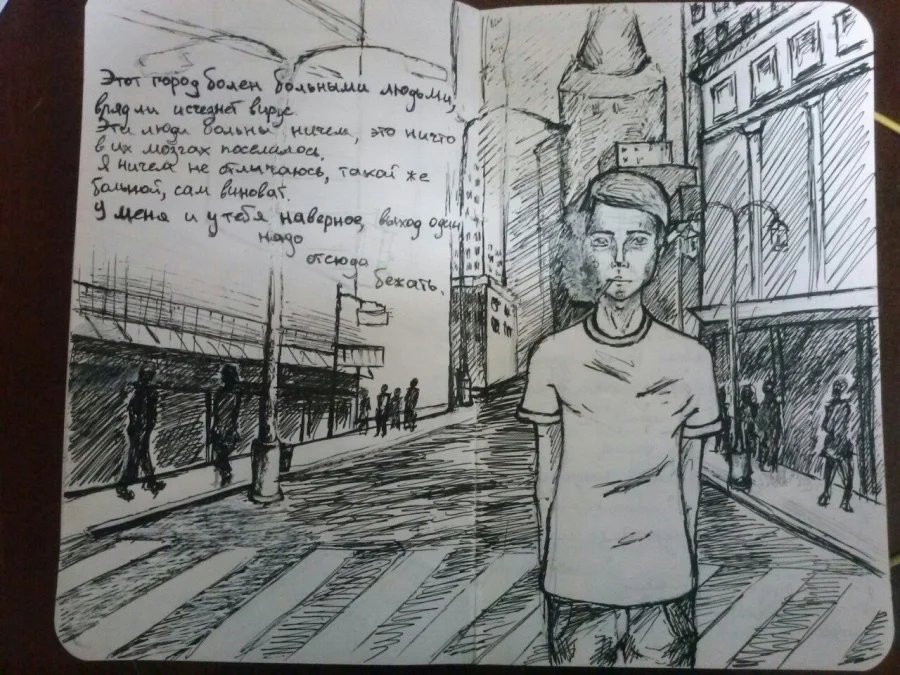 Этот город болен больными людьми,
врядли исчезнет вирус.
Эти люди больны ничем, это ничто
в их мозгах поселилось.
Я ничем не отличаюсь, такой же
больной, сам виноват.
У меня и у тебя наверное, выход один
надо
отсюда
бежать.